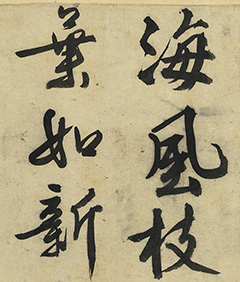 海風枝
葉如新